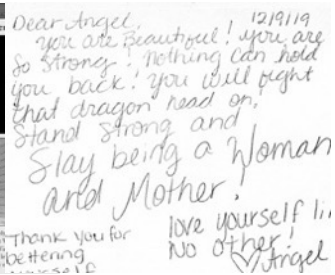 Dear Angel, 12/9/19
you are Beautiful! you are
so strong! Nothing can hold
you back! you will fight
that dragon head on,
Stand strong and
Slay being a Woman
and Mother!
Thank you for
bettering
yourself
love yourself li
No other!
♡ Angel